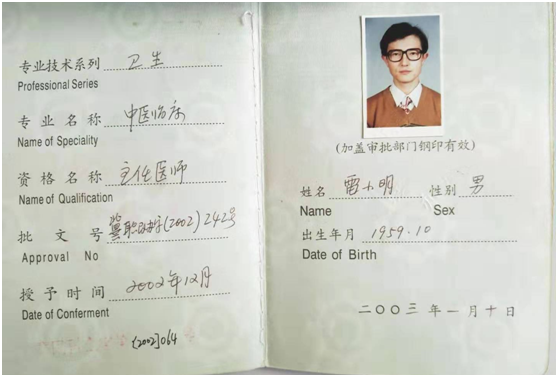 专业技术系列 卫生
Professional Series
专业名称 中医临床
Name of Speciality
资格名称 主任医师
Name of Qualification
批文号 冀职改办字(2002)242号
Approval No
授予时间 2002年12月
Date of Conferment
[2002]064
(加盖审批部门钢印有效)
姓名 雷小明 性别 男
Name Sex
出生年月 1959.10
Date of Birth
二〇〇三年一月十日